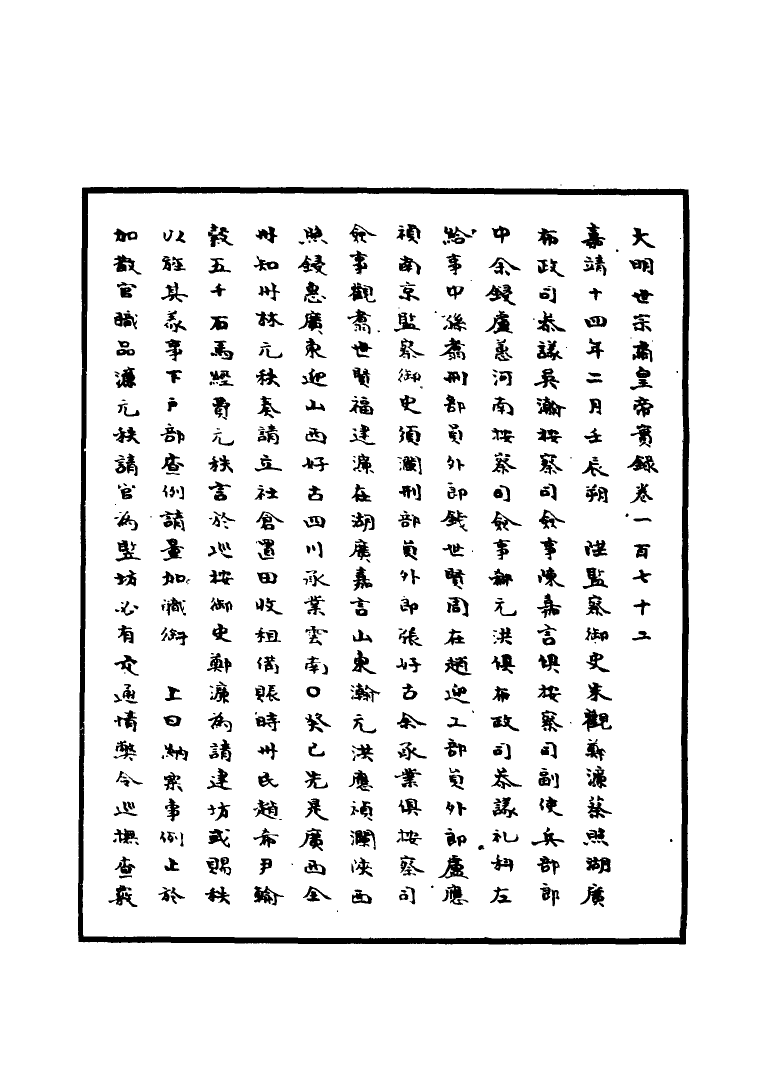 大明世宗肅皇帝實錄卷一百七十二
嘉靖十四年二月壬辰朔　陞監察御史朱觀鄭濂蔡照湖廣
布政司叅議吳瀚按察司僉事陳嘉言俱按察司副使兵部郎
中余鋟盧蕙河南按察司僉事鄒元洪俱布政司叅議礼科左
給事中孫齋刑部員外郎錢世賢周在趙迎工部員外郎盧應
禎南京監察御史須瀾刑部員外郎張好古余承業俱按察司
僉事觀齋世賢福建濂在湖廣嘉言山東瀚元洪應禎瀾陝西
照鋟惠廣東迎山西好古四川承業雲南〇癸巳先是廣西全
州知州林元秩奏請立社倉置田收租備賑時州民趙希尹輸
穀五千石馬經費元秩言於巡按御史鄭濂為請建坊或賜秩
以旌其義事下戶部查例請量加職銜　上曰納粟事例止於
加散官職品濂元秩請官為竪坊必有交通情獘令巡撫查覈